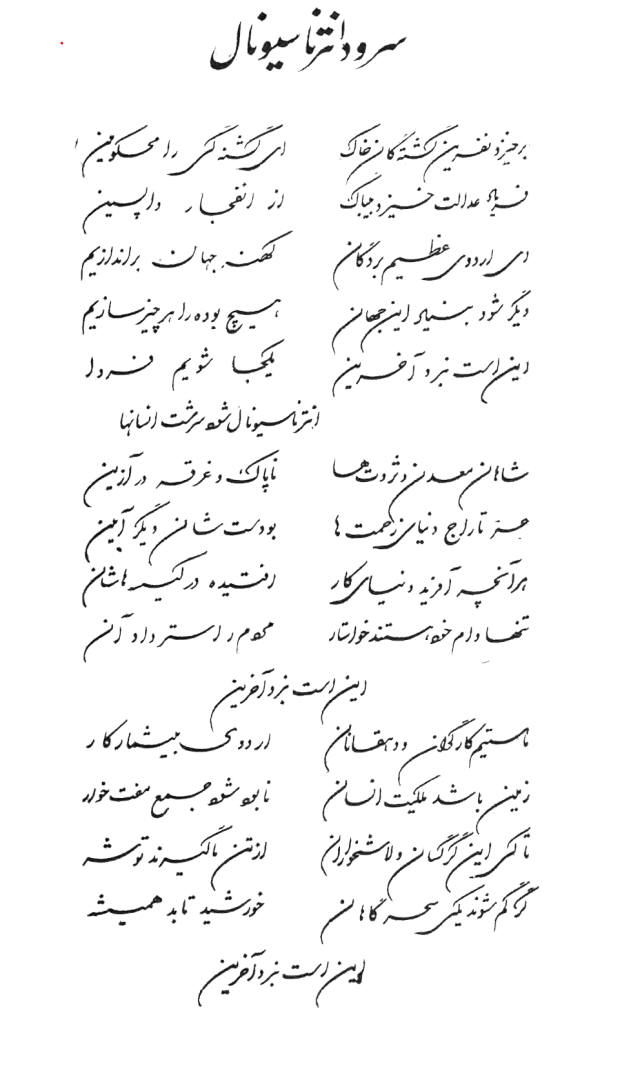 سرود انترناسیونال
برخیزد نفرین گشتگان خاک    ای گشنگی را محکومین
فریاد عدالت خیزد بیباک    از انفجار واپسین
ای اردوی عظیم بردگان    کهنه جهان براندازیم
دیگر شود بنیاد این جهان    هیچ بوده را هر چیز سازیم
این است نبرد آخرین    یکجا شویم فردا
انترناسیونال شود سرشت انسانها
شاهان معدن و ثروت ها    ناپاک و غرقه در آزین
جز تاراج دنیای زحمت ها    بودست شان دیگر آیین
هر آنچه آفرید دنیای کار    رفتیده در گنجینه هاشان
تنها وام خود هستند خواستار    مردم در استرداد آن
این است نبرد آخرین
ماستیم کارگران و دهقانان    اردوی بیشمار کار
زمین باشد ملکیت انسان    نابود شود جمع مفت خوار
تا کی این گرگان و لاشخواران    از تن ما گیرند توشه
گر گم شوند یکی سحرگاهان    خورشید تابد همیشه
این است نبرد آخرین